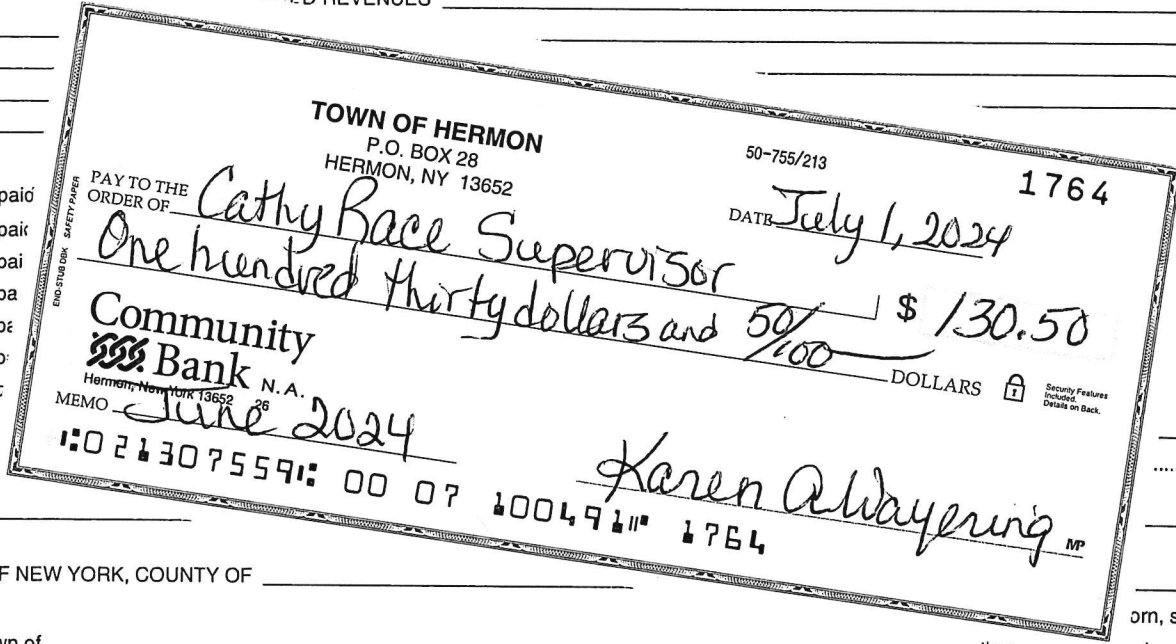 D REVENUES
TOWN OF HERMON
P.O. BOX 28
HERMON, NY 13652
50-755/213
1764
PAY TO THE
ORDER OF Cathy Race Supervisor
DATE July 1, 2024
One hundred thirty dollars and 50/100 DOLLARS
$ 130.50
Security Features
Included.
Details on Back.
END-STUB DBK SAFETY PAPER
Community
Bank N.A.
Hermon, New York 13652 26
MEMO June 2024
Karen A Wayering MP
⑆021307559⑆ 00 07 100491⑈ 1764
paid
paid
pai
pa
F NEW YORK, COUNTY OF
orn, s
wn of